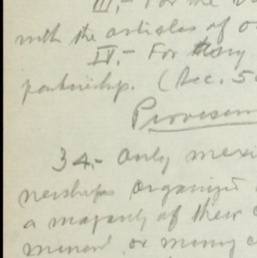 III.- For the
with the articles of
IV.- For
partnership. (Sec. 5
Provision
34.- Only mexi
nerships organized
a majority of their
or